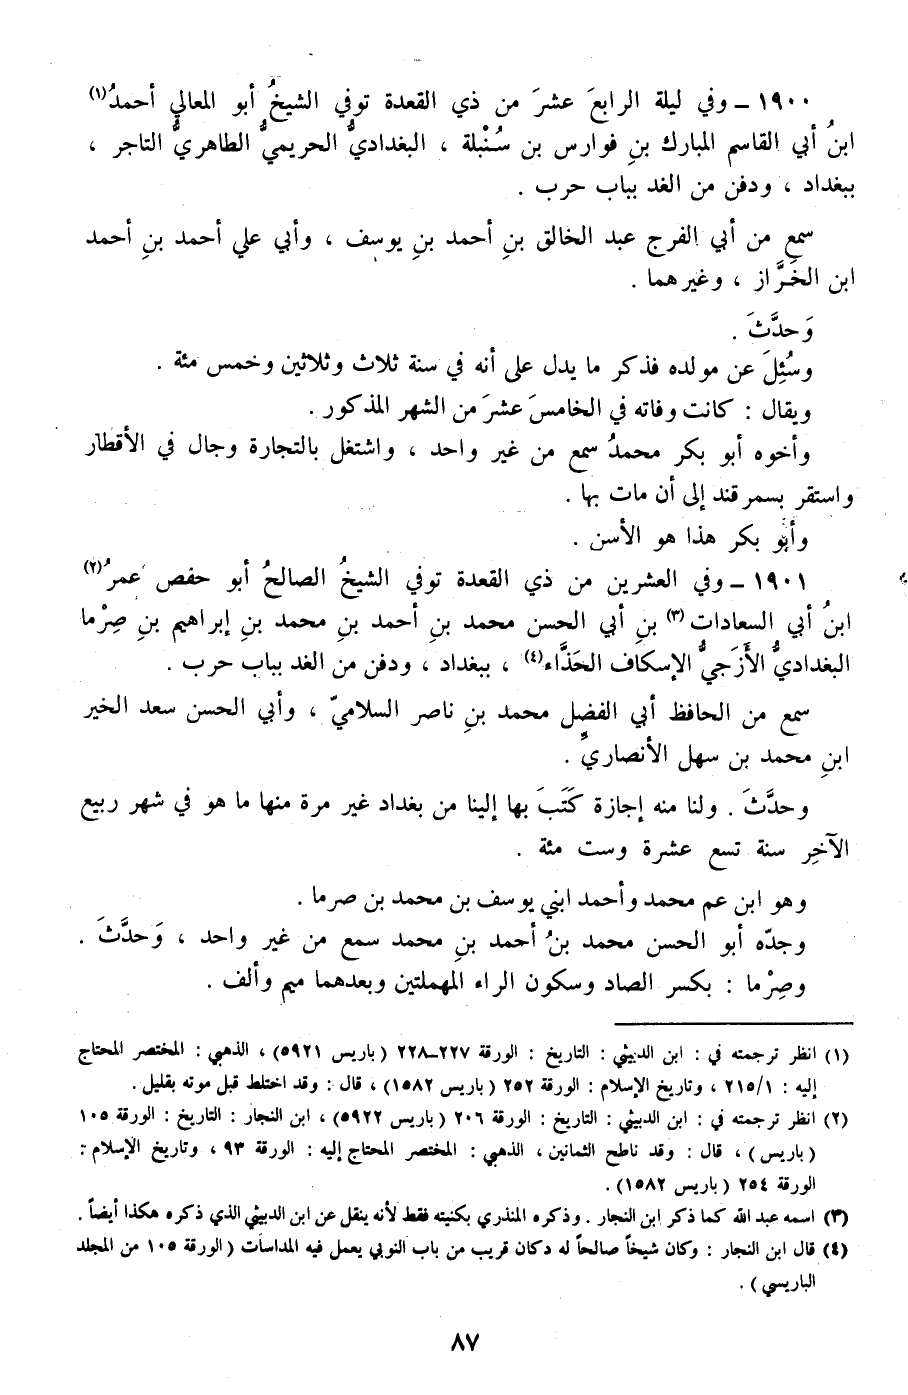 ١٩٠٠ ـ وفي ليلة الرابعَ عشرَ من ذي القعدة توفي الشيخُ أبو المعالي أحمدُ(١)
ابنُ أبي القاسم المبارك بنِ فوارس بن سُنْبلة ، البغداديُّ الحريميُّ الطاهريُّ التاجر ،
ببغداد ، ودفن من الغد بباب حرب .
سمع من أبي الفرج عبد الخالق بنِ أحمد بنِ يوسف ، وأبي علي أحمد بنِ أحمد
ابن الخَرَّاز ، وغيرهما .
وَحدَّثَ .
وسُئِلَ عن مولده فذكر ما يدل على أنه في سنة ثلاث وثلاثين وخمس مئة .
ويقال : كانت وفاته في الخامسَ عشرَ من الشهر المذكور .
وأخوه أبو بكر محمدُ سمع من غير واحد ، واشتغل بالتجارة وجال في الأقطار
واستقر بسمرقند إلى أن مات بها .
وأبو بكر هذا هو الأسن .
١٩٠١ ـ وفي العشرين من ذي القعدة توفي الشيخُ الصالحُ أبو حفص عمرُ(٢)
ابنُ أبي السعادات(٣) بنِ أبي الحسن محمد بنِ أحمد بنِ محمد بنِ إبراهيم بنِ صِرْما
البغداديُّ الأَزَجيُّ الإسكاف الحَذَّاء(٤) ، ببغداد ، ودفن من الغد بباب حرب .
سمع من الحافظ أبي الفضل محمد بنِ ناصر السلاميّ ، وأبي الحسن سعد الخير
ابنِ محمد بن سهل الأنصاريِّ .
وحدَّثَ . ولنا منه إجازة كَتَبَ بها إلينا من بغداد غير مرة منها ما هو في شهر ربيع
الآخِر سنة تسع عشرة وست مئة .
وهو ابن عم محمد وأحمد ابني يوسف بن محمد بن صرما .
وجدّه أبو الحسن محمد بنُ أحمد بنِ محمد سمع من غير واحد ، وَحدَّثَ .
وصِرْما : بكسر الصاد وسكون الراء المهملتين وبعدهما ميم وألف .
(١) انظر ترجمته في : ابن الدبيثي : التاريخ : الورقة ٢٢٧ـ٢٢٨ (باريس ٥٩٢١) ، الذهبي : المختصر المحتاج
إليه : ١/ ٢١٥ ، وتاريخ الإسلام : الورقة ٢٥٢ (باريس ١٥٨٢) ، قال : وقد اختلط قبل موته بقليل .
(٢) انظر ترجمته في : ابن الدبيثي : التاريخ : الورقة ٢٠٦ (باريس ٥٩٢٢) ، ابن النجار : التاريخ : الورقة ١٠٥
(باريس) ، قال : وقد ناطح الثمانين ، الذهبي : المختصر المحتاج إليه : الورقة ٩٣ ، وتاريخ الإسلام :
الورقة ٢٥٤ (باريس ١٥٨٢) .
(٣) اسمه عبد الله كما ذكر ابن النجار . وذكره المنذري بكنيته فقط لأنه ينقل عن ابن الدبيثي الذي ذكره هكذا أيضاً .
(٤) قال ابن النجار : وكان شيخاً صالحاً له دكان قريب من باب النوبي يعمل فيه المداسات (الورقة ١٠٥ من المجلد
الباريسي) .
٨٧